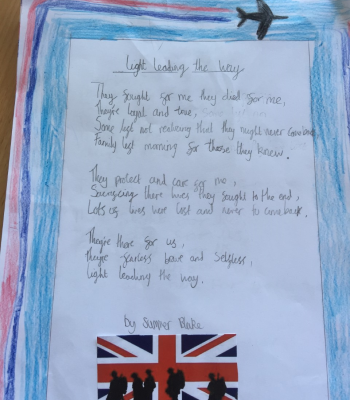 Light leading the way
They fought for me they died for me,
They're loyal and true,
Some left not realising that they might never come back,
Family left morning for those they knew.
They protect and care for me,
Sacrificing there lives they fought to the end,
Lots of lives were lost and never to come back.
They're there for us,
They're fearless brave and selfless,
light leading the way.
by Summer Blake